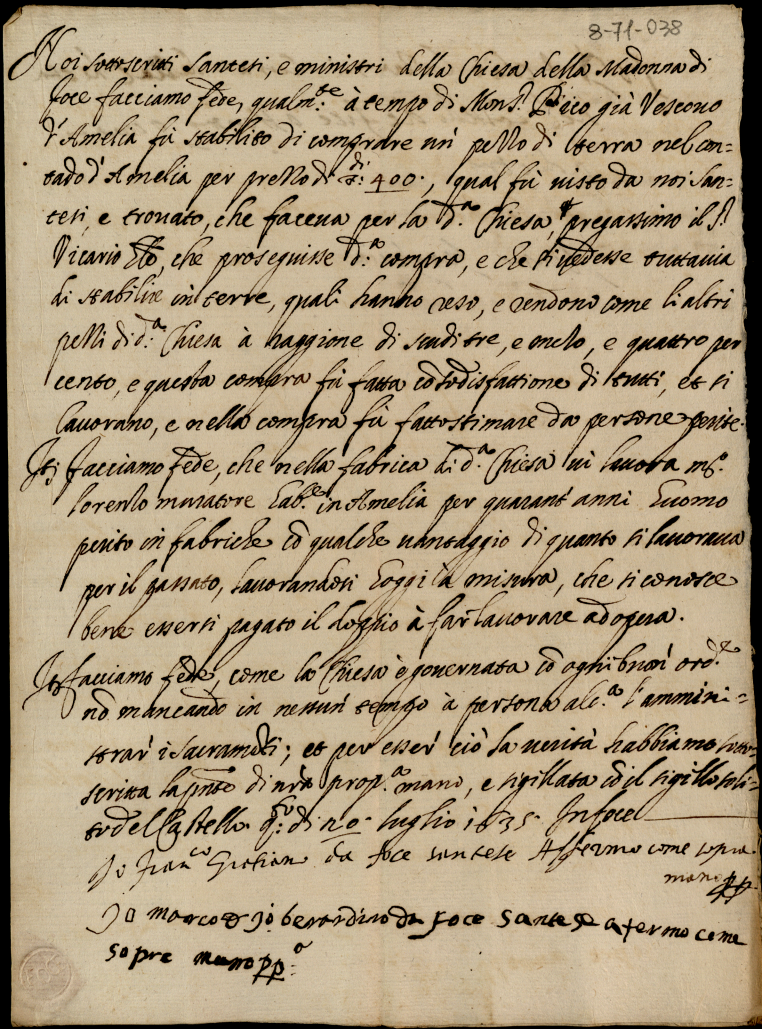 8-71-038
Noi sottoscritti santesi, e ministri della Chiesa della Madonna di
foce facciamo fede, qualm.te à tempo di Mons.r Pico già Vescovo
d'Amelia fù stabilito di comprare un' pezzo di terra nel con=
tado d'Amelia per prezzo di 400., qual fù visto da noi san=
tesi, e trovato, che faceva per la d.a Chiesa, pregassimo il S.r
Vicario che proseguisse d.a compra, e che si vedesse tuttavia
di stabilire in terre, quali hanno reso, e rendono come li altri
pezzi di d.a Chiesa à raggione di scudi tre, e mezo, e quattro per
cento, e questa compra fù fatta cō sodisfattione di tutti, et si
lavorano, e nella compra fù fatto stimare da persone perite.
It. facciamo fede, che nella fabrica di d.a Chiesa vi lavora m.o
Lorenzo muratore hab.te in Amelia per quarant'anni huomo
perito in fabriche cō qualche vantaggio di quanto si lavorava
per il passato, lavorandosi hoggi à misura, che si conosce
bene essersi pagato il doppio à far lavorare ad opera.
It. facciamo fede, come la Chiesa è governata cō ogni buon' ord.e
nō mancando in nessun' tempo à persona alc.a l'ammini=
strar' i sacramēti; et per esser' ciò la verità habbiamo sotto=
scritta la pñte di nrã prop.a mano, e sigillata cō il sigillo soli=
to del Castello q.to dì 20 luglio 1635. In foce
Io Fran.co da foce santese Affermo come sopra
mano pp
Io marco di berardino da foce santese afermo come
sopre mano pp.a